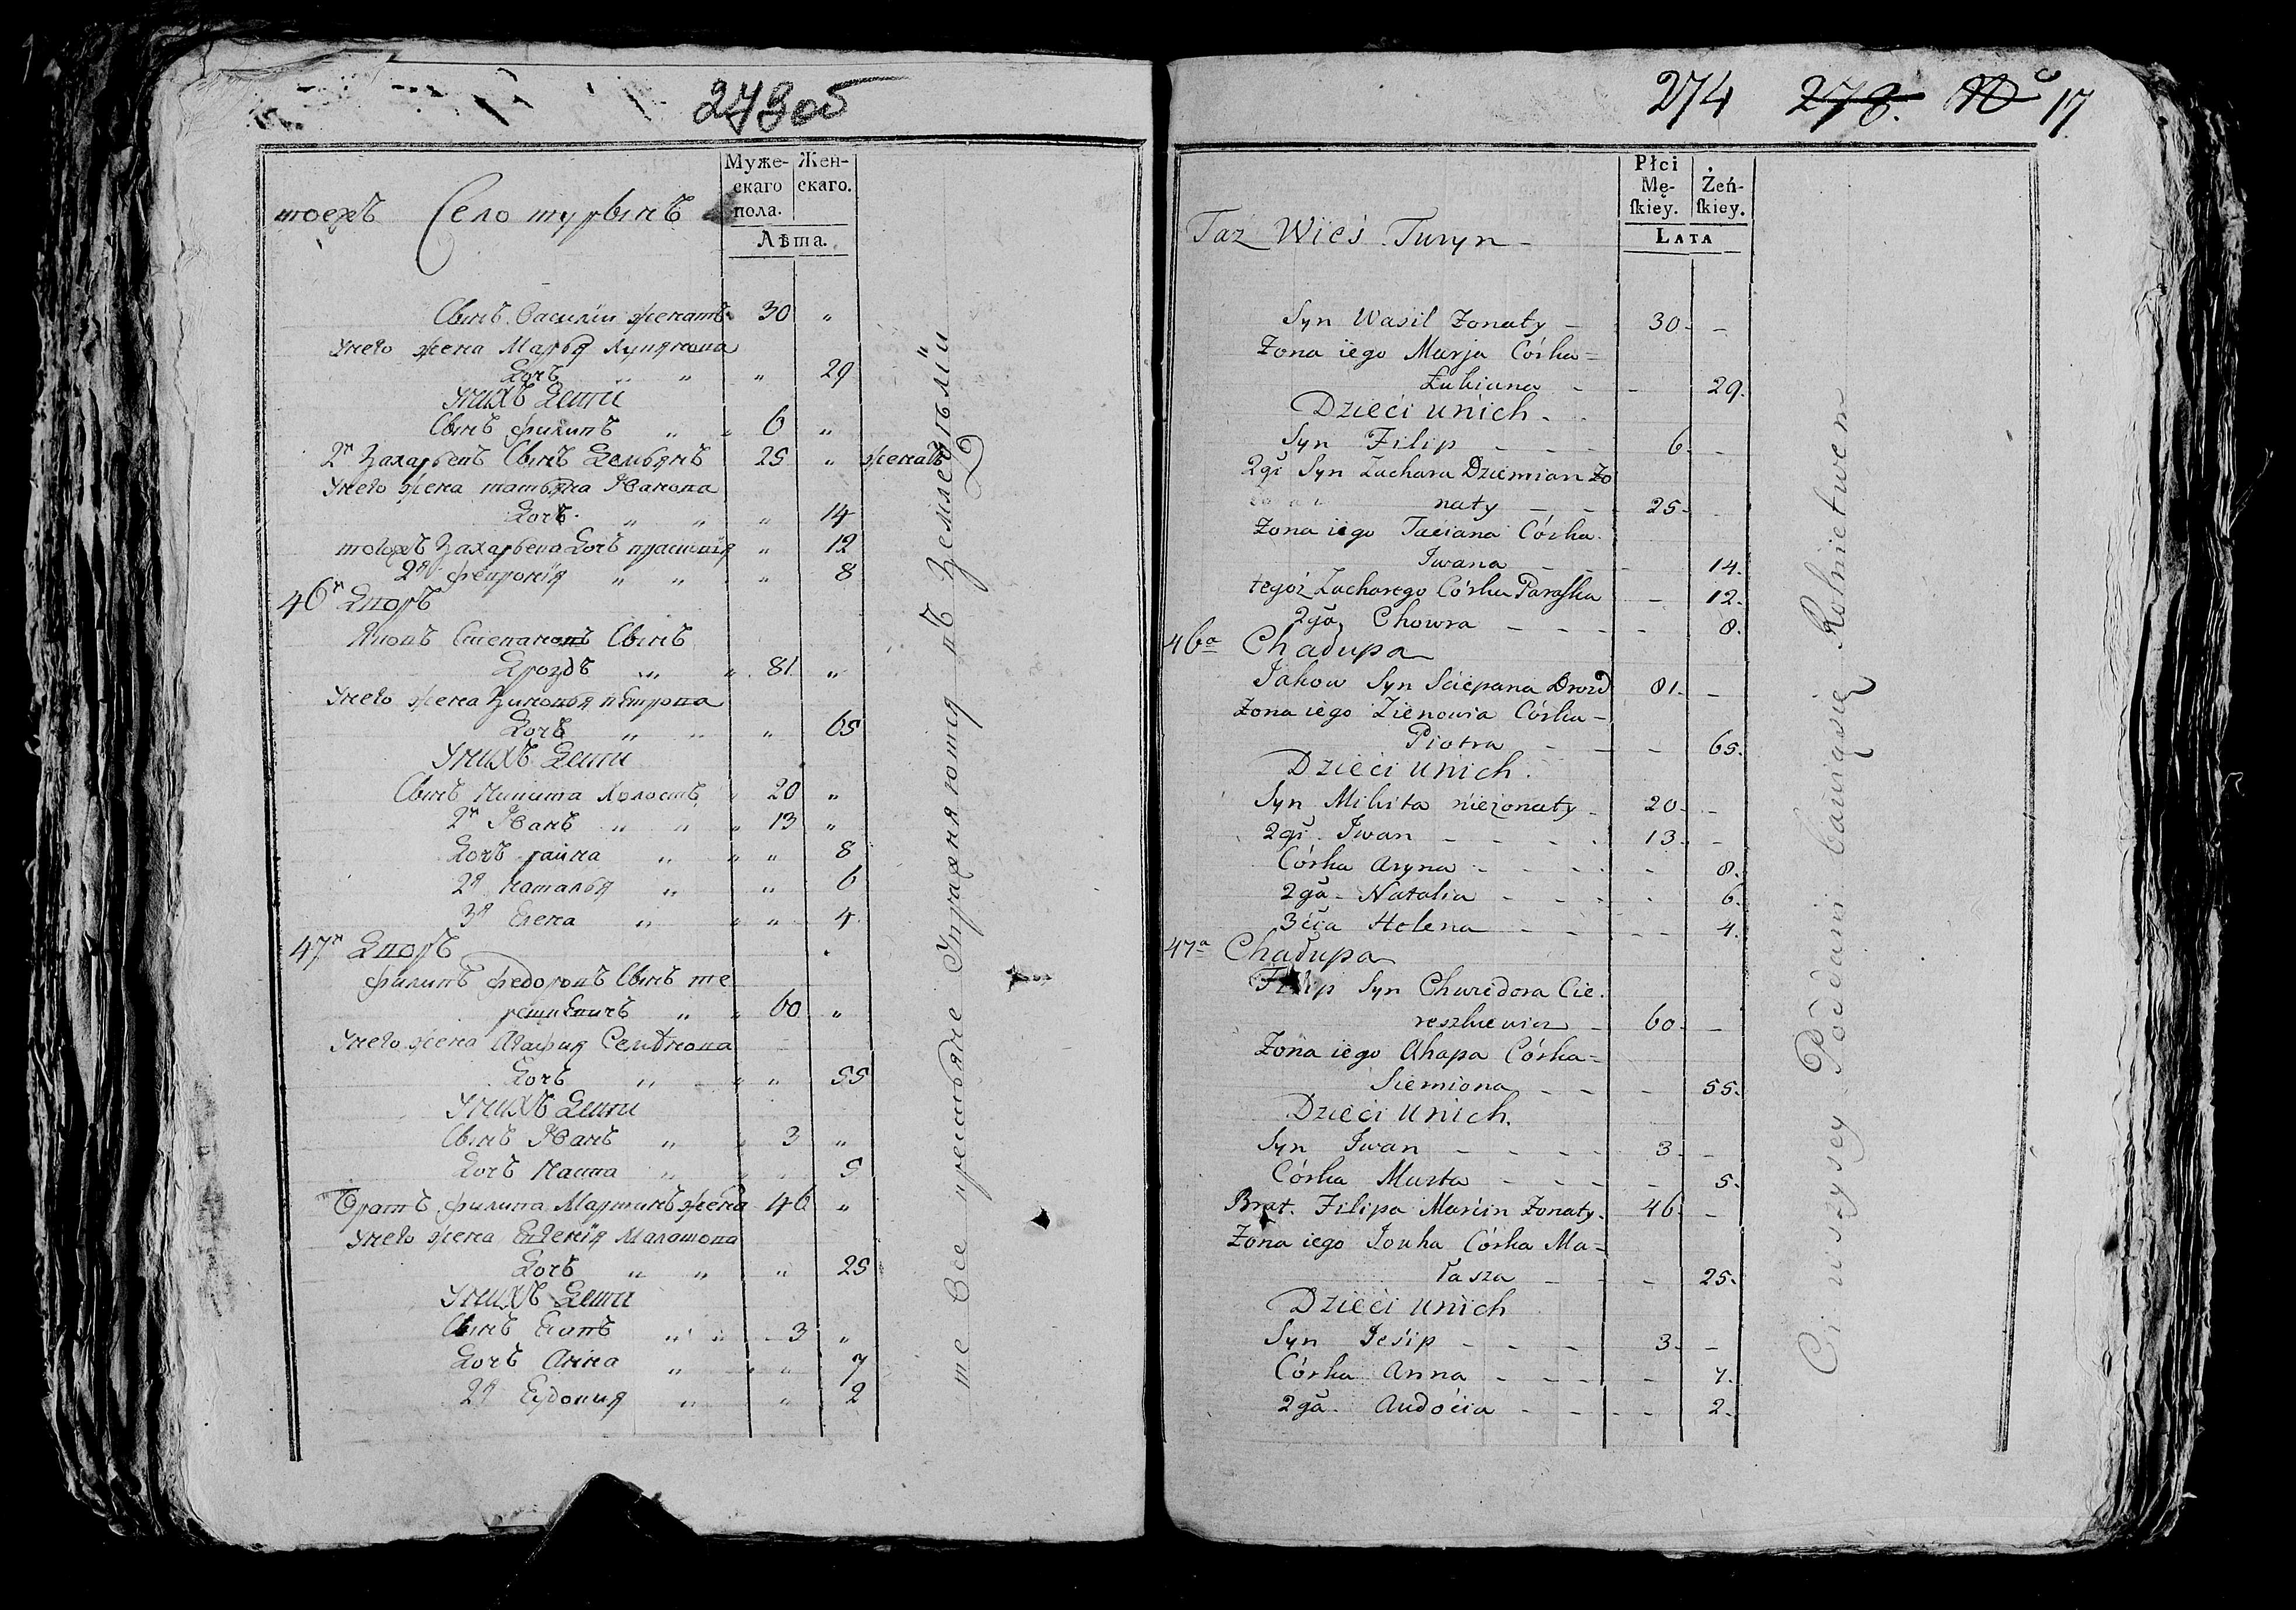 273об
Муже- Жен-
скаго скаго.
пола.
Лѣта.
тоежъ Село турынъ
Сынъ Василій женатъ 30 "
Унего жена Марья Лукянова
дочъ " " " 29
Унихъ дети
Сынъ филипъ " " 6 "
2й Захарьевъ Сынъ демьянъ 25 " женатъ
Унего жена татьяна Иванова
дочъ " " " 14
тогожъ Захарьева дочъ прасковія " 12
2я февронія " " " 8
46й дворъ
Яковъ Степановъ Сынъ
дроздъ " " 81 "
Унего жена Зиновья петрова
дочъ " " " 65
Унихъ дети
Сынъ Никита Холостъ " 20 "
2й Иванъ " " " 13 "
дочъ райна " " " 8
2я наталья " " 6
3я Елена " " " 4
47й дворъ
филипъ федоровъ Сынъ те
решкевичъ " " 60 "
Унего жена Агафия Семѣнова
дочъ " " " 55
Унихъ дети
Сынъ Иванъ " " 3 "
дочъ " " " 5
братъ филипа Мартинъ жена 46 "
Унего жена Евгенія Малашова
дочъ " " " 25
Унихъ дети
Сынъ " " 3 "
дочъ Анна " " " 7
2я Евдокия " " 2
те Все крестьяне Упражняютця въ Земледѣліи
274 273. 17
Płci
Mę- Żeń-
ſkiey. ſkiey.
LATA
Taż Wieś Turyn -
Syn Wasil Żonaty - 30. -
Żona iego Marja Córka =
Łukiana - - 29.
Dzieci unich.
Syn Filip - - - 6. -
2gi Syn Zachara Dziemian Żo
naty - - - 25. -
Żona iego Taciana Córka.
Iwana - - - 14.
tegoż Zacharego Córka Paraſka - 12.
2ga Chowra - - - - 8.
46a Chałupa
Jakow Syn Sciepana Drozd 81. -
Żona iego Zienowia Córka -
Piotra - - - 65.
Dzieci unich.
Syn Mikita nieżonaty - 20. -
2gi Iwan - - - - 13. -
Córka Aryna - - - - - 8.
2ga - Natalia - - - - 6.
3cia Helena - - - - 4.
47a Chałupa
Filip Syn Chwiedora Cie.
reszkiewicz - 60. -
Żona iego Ahapa Córka =
Siemiona - - - 55.
Dzieci unich.
Syn Iwan - - - - 3. -
Córka Marta - - - - - 5.
Brat. Filipa Marcin Żonaty. 46. -
Żona iego Jouha Córka Ma =
łasza - - - 25.
Dzieci unich
Syn Jesip - - - - 3. -
Córka Anna - - - - - 7.
2ga. Audocia - - - - 2.
Ci wszyscy Poddani bawiąsię Rolnictwem